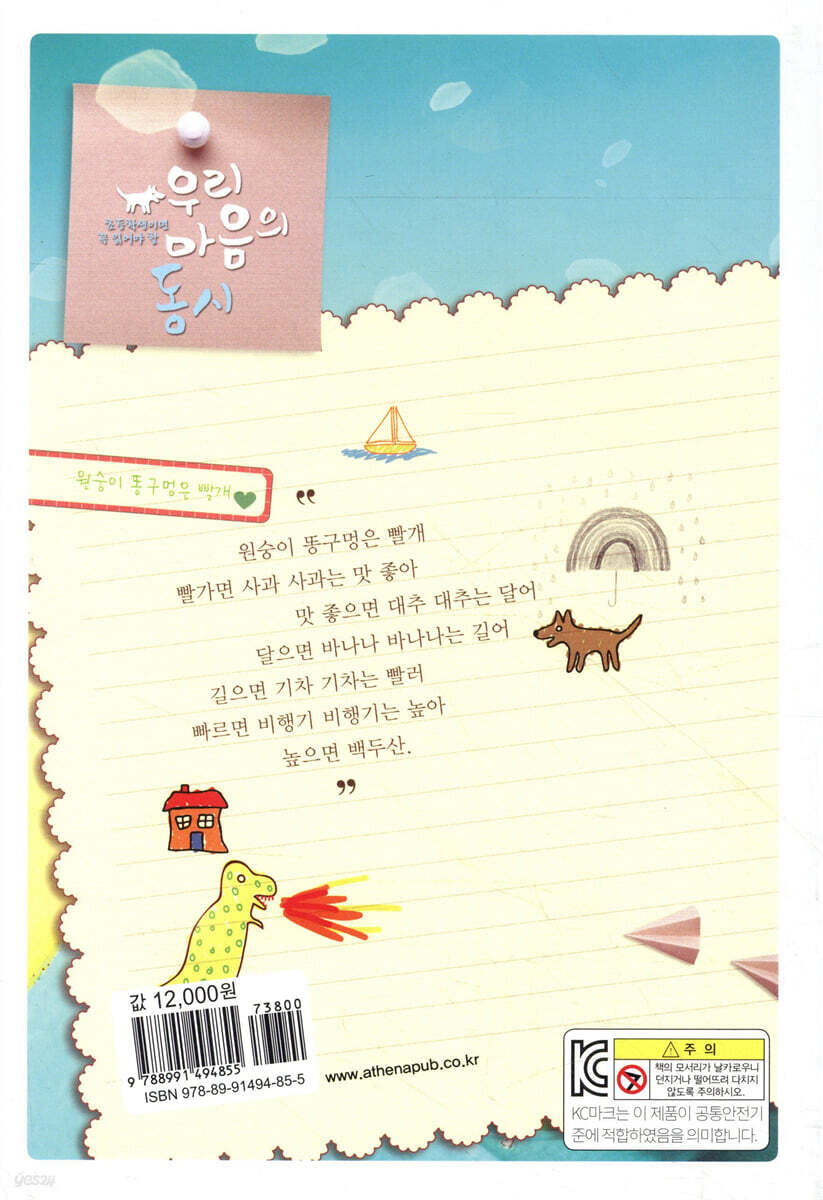 우리
초등학생이면
꼭 읽어야 할
마음의
동시
원숭이 똥구멍은 빨개
"
원숭이 똥구멍은 빨개
빨가면 사과 사과는 맛 좋아
맛 좋으면 대추 대추는 달어
달으면 바나나 바나나는 길어
길으면 기차 기차는 빨러
빠르면 비행기 비행기는 높아
높으면 백두산.
"
값 12,000원
73800
9 788991 494855
ISBN 978-89-91494-85-5
www.athenapub.co.kr
KC
주 의
책의 모서리가 날카로우니
던지거나 떨어뜨려 다치지
않도록 주의하시오.
KC마크는 이 제품이 공통안전기
준에 적합하였음을 의미합니다.
yes24